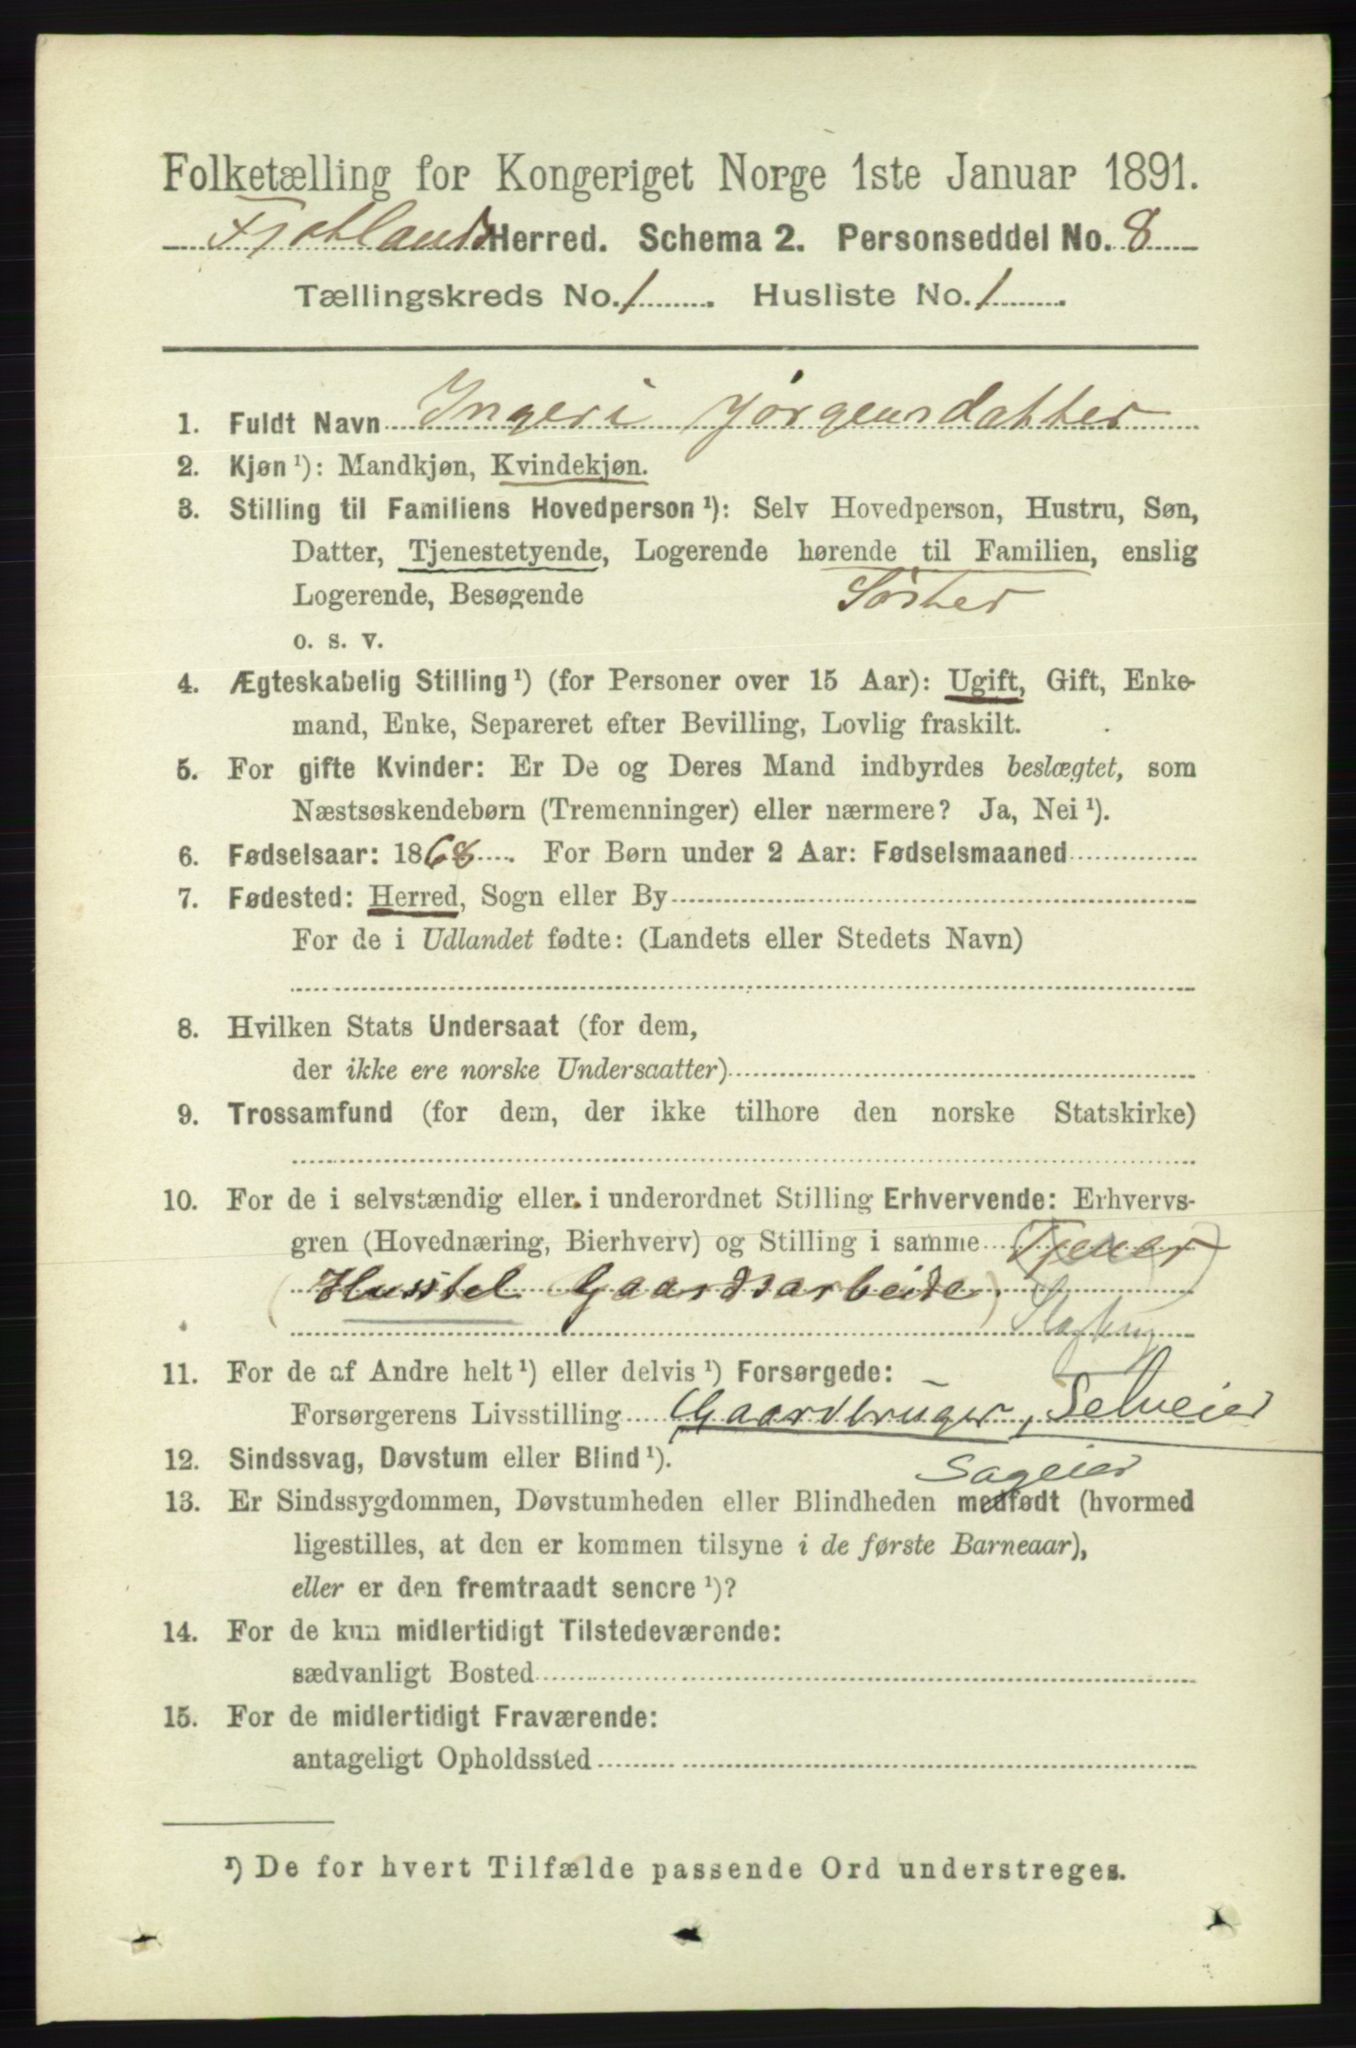 Folketælling for Kongeriget Norge 1ste Januar 1891.
Fjotlands Herred. Schema 2. Personseddel No. 8
Tællingskreds No. 1. Husliste No. 1.
1. Fuldt Navn Ingeri Jørgensdatter
2. Kjøn ¹): Mandkjøn, Kvindekjøn.
3. Stilling til Familiens Hovedperson ¹): Selv Hovedperson, Hustru, Søn,
Datter, Tjenestetyende, Logerende hørende til Familien, enslig
Logerende, Besøgende Søster
o. s. v.
4. Ægteskabelig Stilling ¹) (for Personer over 15 Aar): Ugift, Gift, Enke-
mand, Enke, Separeret efter Bevilling, Lovlig fraskilt.
5. For gifte Kvinder: Er De og Deres Mand indbyrdes beslægtet, som
Næstsøskendebørn (Tremenninger) eller nærmere? Ja, Nei ¹).
6. Fødselsaar: 1868. For Børn under 2 Aar: Fødselsmaaned
7. Fødested: Herred, Sogn eller By
For de i Udlandet fødte: (Landets eller Stedets Navn)
8. Hvilken Stats Undersaat (for dem,
der ikke ere norske Undersaatter)
9. Trossamfund (for dem, der ikke tilhore den norske Statskirke)
10. For de i selvstændig eller i underordnet Stilling Erhvervende: Erhvervs-
gren (Hovednæring, Bierhverv) og Stilling i samme (Tjener)
(Husstel Gaardsarbeide)
11. For de af Andre helt ¹) eller delvis ¹) Forsørgede:
Forsørgerens Livsstilling Gaardbruger, Selveier
Sageier
12. Sindssvag, Døvstum eller Blind ¹).
13. Er Sindssygdommen, Døvstumheden eller Blindheden medfødt (hvormed
ligestilles, at den er kommen tilsyne i de første Barneaar),
eller er den fremtraadt senere ¹)?
14. For de kun midlertidigt Tilstedeværende:
sædvanligt Bosted
15. For de midlertidigt Fraværende:
antageligt Opholdssted
¹) De for hvert Tilfælde passende Ord understreges.